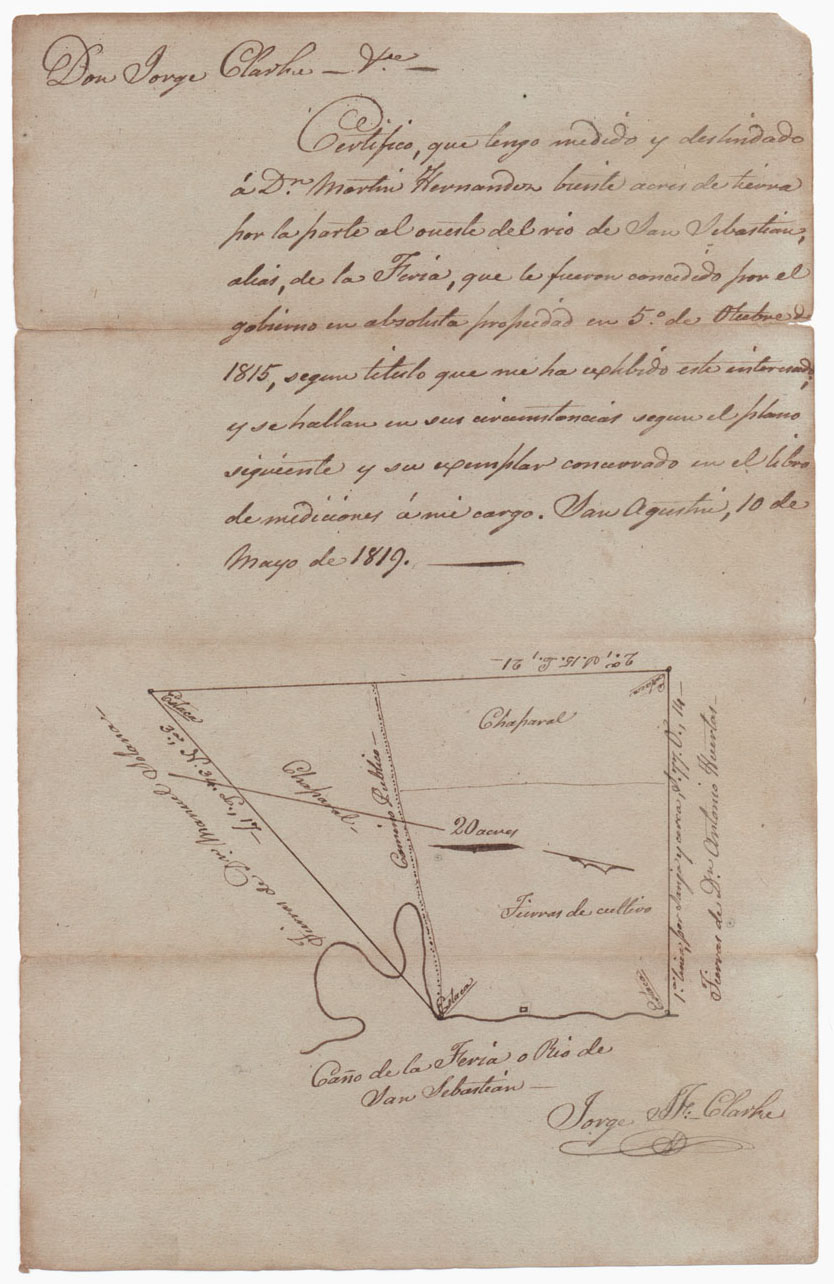 Don Jorge Clarke — &ce —
Certifico, que tengo medido y deslindado
á Dn. Martin Hernandez biente acres de tierra
por la parte al oueste del rio de San Sebastián,
alias, de la Feria, que le fueron concedido por el
gobierno en absoluta propiedád en 5.º de Otubre de
1815, segun titulo que me ha exhibido este interesado,
y se hallan en sus circumstancias segun el plano
siguiente y su exemplar concervado en el libro
de mediciones á mi cargo. San Agustin, 10 de
Mayo de 1819.
2ª; N. 15. E., 21 —
Estaca
Estaca
Chaparal
Chaparal
Camino Publico —
20 acres
Tierras de cultivo
Tierras de Dn. Manuel Solana —
1ª linea, por Sanja y cerca, S. 77. O., 14 —
Tierras de Dn. Antonio Huertas —
Estaca
Estaca
Caño de la Feria o Rio de
San Sebastián —
Jorge J. F. Clarke